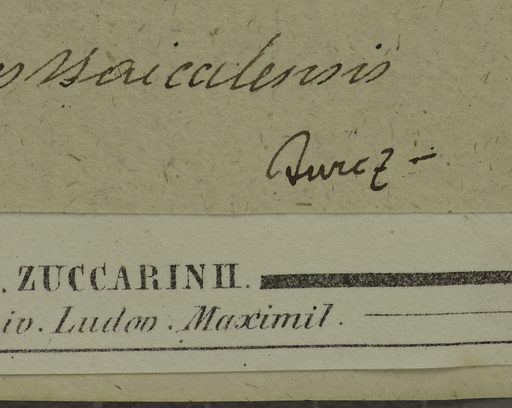 s Baicalensis
Turcz-
. ZUCCARINII.
iv. Ludov. Maximil.